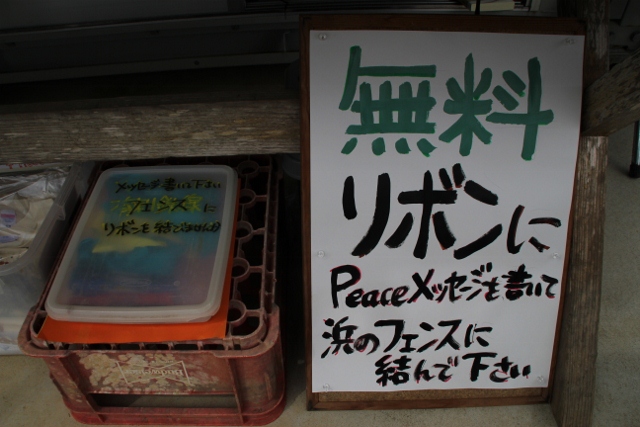 無料
リボンに
Peaceメッセージを書いて
浜のフェンスに
結んで下さい
メッセージを書いて下さい
フェンスに
リボンを結びませんか